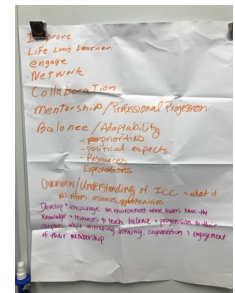 Improve
Life Long Learner
engage
Network
Collaboration
Mentorship/Professional Progression
Balance/Adaptability
- priorities
- political aspects
- Resources
- Expectations
Overview/Understanding of ICC - what it
all offers, resources, opportunities
Develop & encourage an environment where leaders have the
knowledge & resources to teach balance & progression to their
chapters while achieving learning, engagement
of their membership